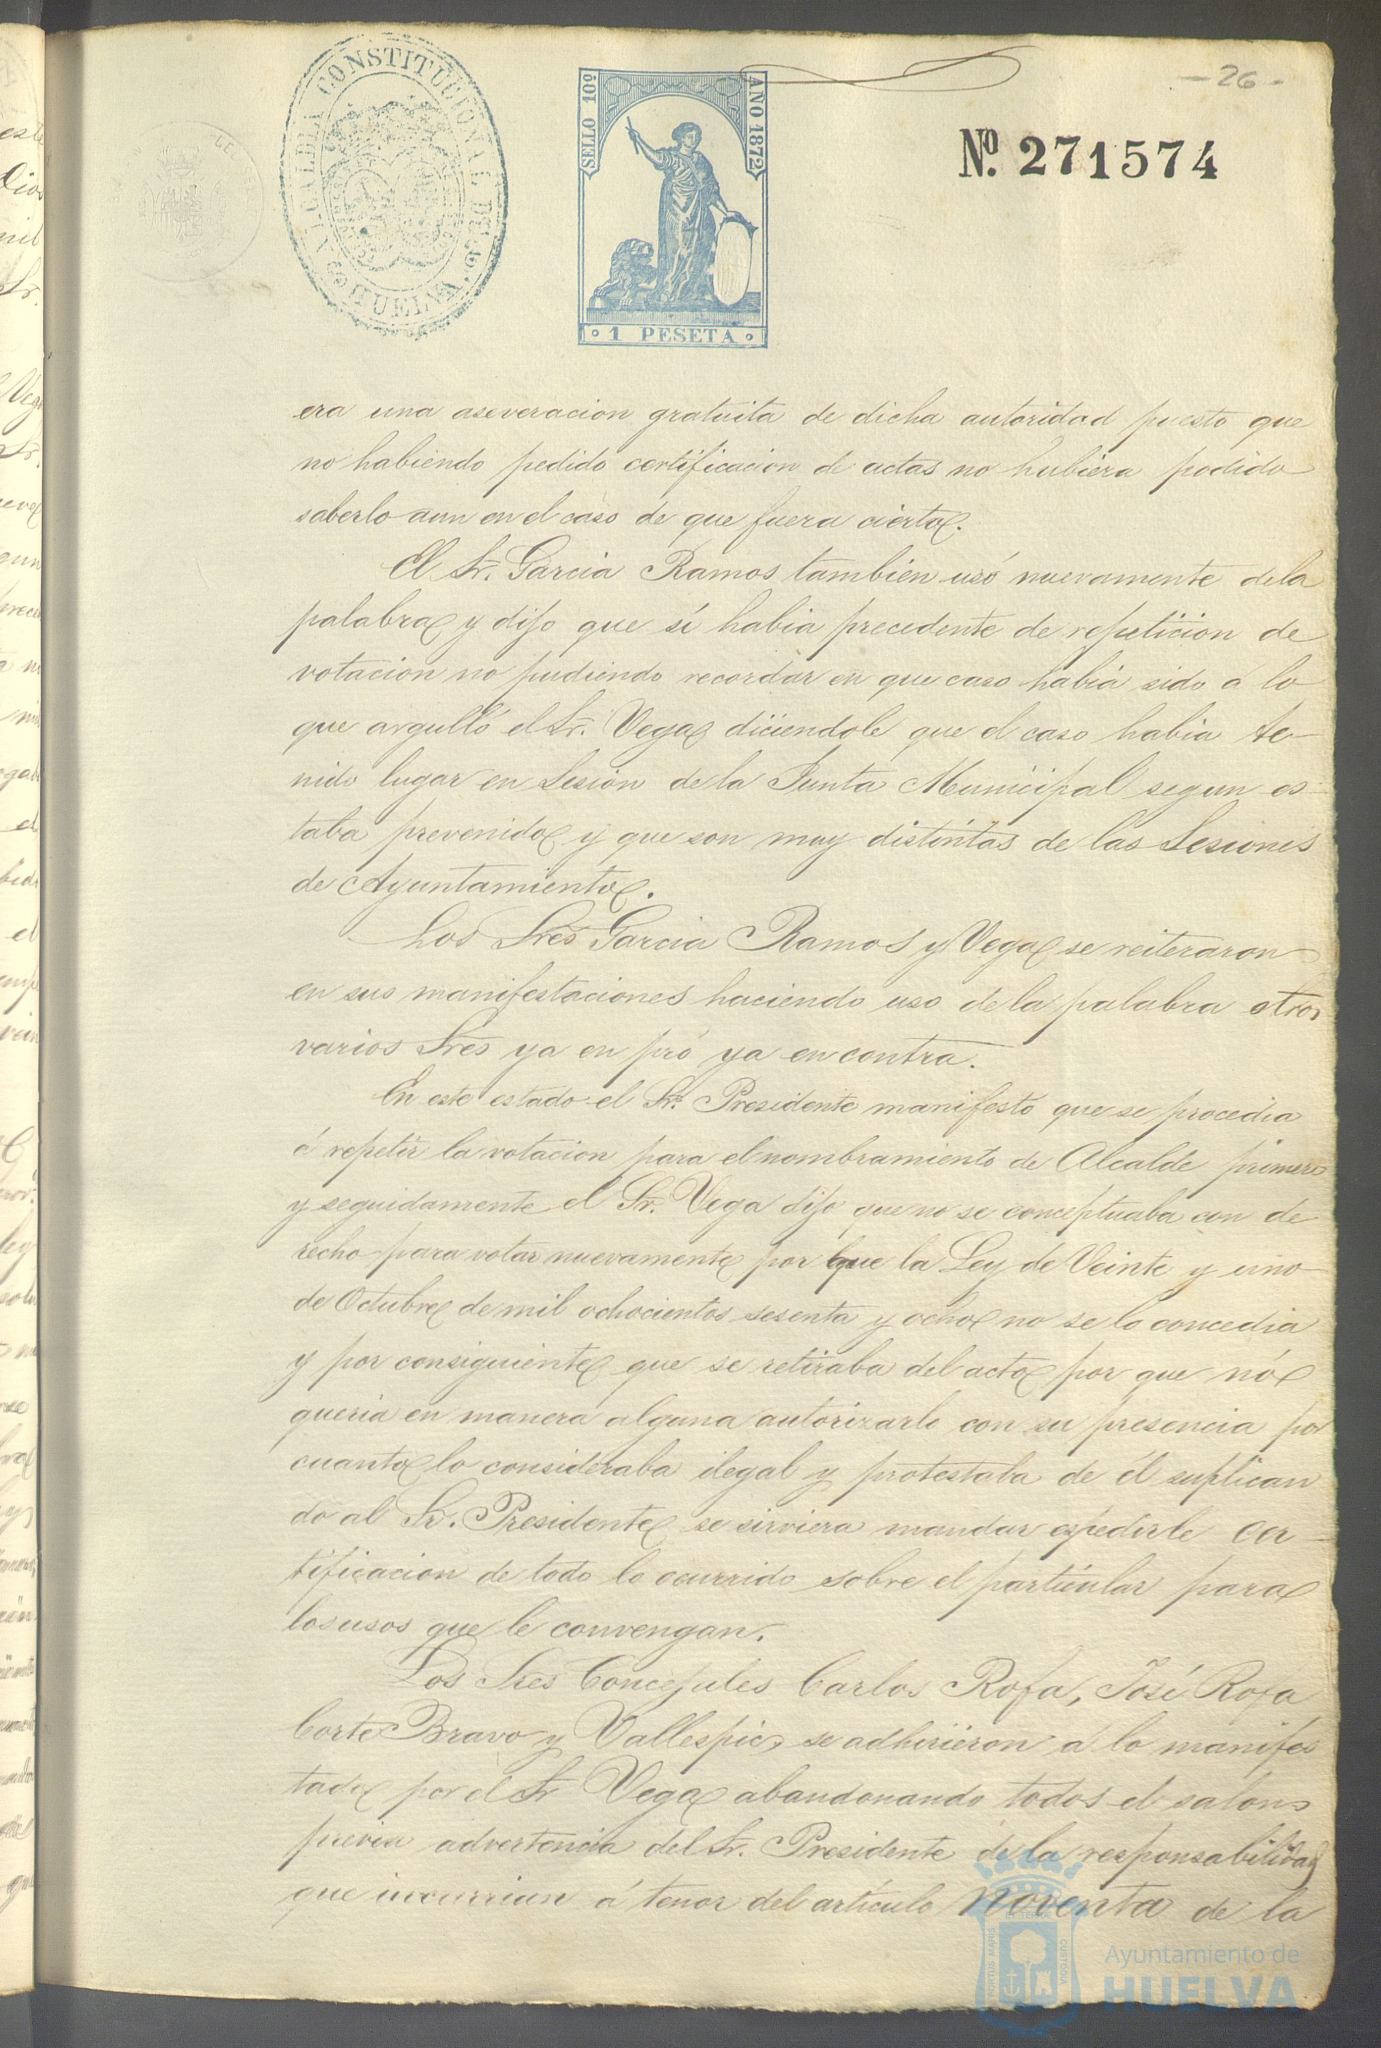 - 26 -
ALCALDIA CONSTITUCIONAL DE HUELVA
SELLO 10º
AÑO 1872
1 PESETA
Nº. 271574
era una aseveracion gratuita de dicha autoridad puesto que
no habiendo pedido certificacion de actas no hubiera podido
saberlo aun en el caso de que fuera cierto.
El Sr. Garcia Ramos tambien usó nuevamente de la
palabra y dijo que si habia precedente de repeticion de
votacion no pudiendo recordar en que caso habia sido a lo
que argulló el Sr. Vega diciendole que el caso habia te-
nido lugar en Sesion de la Junta Municipal segun es-
taba prevenido y que son muy distintas de las Sesiones
de Ayuntamiento.
Los Sres Garcia Ramos y Vega se reiteraron
en sus manifestaciones haciendo uso de la palabra otros
varios Sres ya en pró ya en contra.
En este estado el Sr. Presidente manifestó que se procedia
á repetir la votacion para el nombramiento de Alcalde primero
y seguidamente el Sr. Vega dijo que no se conceptuaba con de
recho para votar nuevamente por que la Ley de Veinte y uno
de Octubre de mil ochocientos sesenta y ocho no se lo concedia
y por consiguiente que se retiraba del acto por que nó
queria en manera alguna autorizarlo con su presencia por
cuanto lo consideraba ilegal y protestaba de él suplican
do al Sr. Presidente se sirviera mandar espedirle cer-
tificacion de todo lo ocurrido sobre el particular para
los usos que le convengan.
Los Sres Concejales Carlos Rofa, José Rofa
Corte Bravo y Vallespic, se adhirieron a lo manifes
tado por el Sr Vega abandonando todos el salon
previa advertencia del Sr. Presidente de la responsabilidad
que incurrian á tenor del artículo noventa de la
Ayuntamiento de
HUELVA